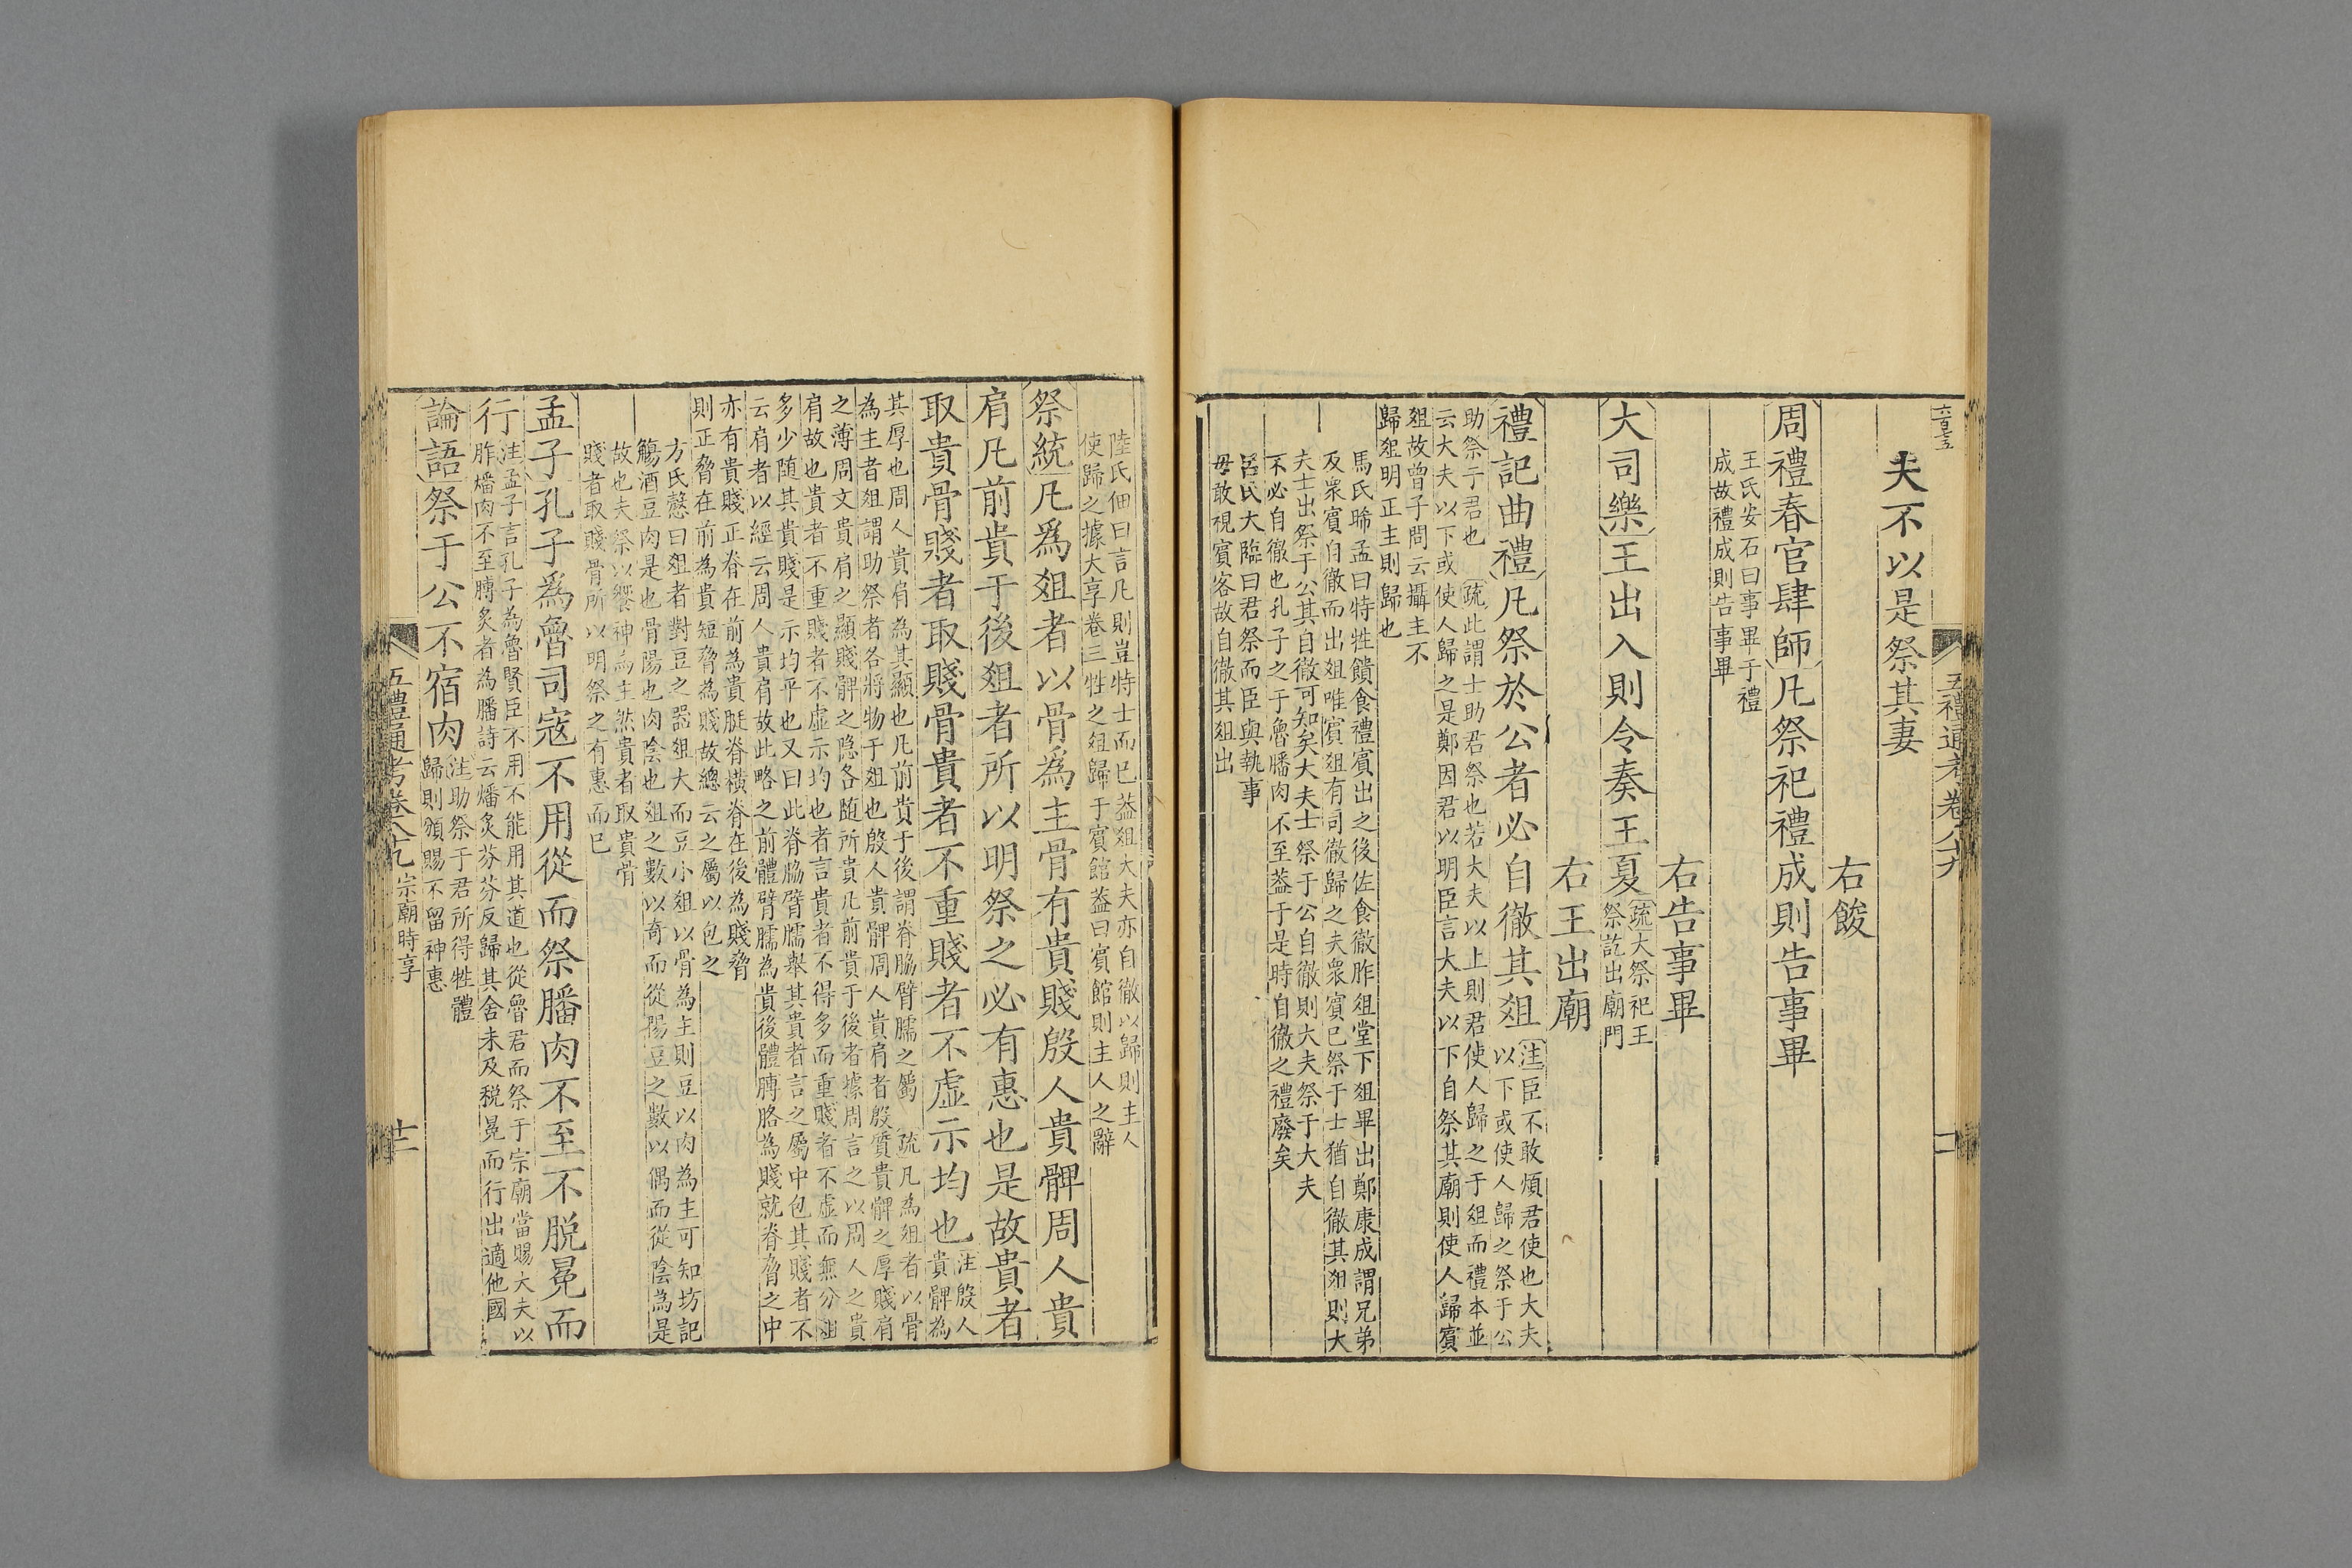 六百七十五
五禮通考卷八十九
夫不以是祭其妻
右餕
周禮春官肆師凡祭祀禮成則告事畢
王氏安石曰事畢于禮
成故禮成則告事畢
右告事畢
大司樂王出入則令奏王夏
疏大祭祀王
祭訖出廟門
右王出廟
禮記曲禮凡祭於公者必自徹其俎
注臣不敢煩君使也大夫
以下或使人歸之祭于公
助祭于君也 疏此謂士助君祭也若大夫以上則君使人歸之于俎而禮本並
云大夫以下或使人歸之是鄭因君以明臣言大夫以下自祭其廟則使人歸賓
俎故曾子問云攝主不
歸俎明正主則歸也
馬氏晞孟曰特牲饋食禮賓出之後佐食徹胙俎堂下俎畢出鄭康成謂兄弟
及衆賓自徹而出俎唯賓俎有司徹歸之夫衆賓已祭于士猶自徹其俎則大
夫士出祭于公其自徹可知矣大夫士祭于公自徹則大夫祭于大夫
不必自徹也孔子之于魯膰肉不至葢于是時自徹之禮廢矣
呂氏大臨曰君祭而臣與執事
毋敢視賓客故自徹其俎出
陸氏佃曰言凡則豈特士而已葢俎大夫亦自徹以歸則主人
使歸之據大享卷三牲之俎歸于賓館葢曰賓館則主人之辭
祭統凡爲俎者以骨爲主骨有貴賤殷人貴髀周人貴
肩凡前貴于後俎者所以明祭之必有惠也是故貴者
取貴骨賤者取賤骨貴者不重賤者不虛示均也
注殷人
貴髀為
其厚也周人貴肩為其顯也凡前貴于後謂脊脇臂臑之屬 疏凡為俎者以骨
為主者俎謂助祭者各將物于俎也殷人貴髀周人貴肩者殷質貴髀之厚賤肩
之薄周文貴肩之顯賤髀之隐各随所貴凡前貴于後者據周言之以周人之貴
肩故也貴者不重賤者不虛示均也者言貴者不得多而重賤者不虛而無分俎
多少随其貴賤是示均平也又曰此脊脇臂臑舉其貴者言之屬中包其賤者不
云肩者以經云周人貴肩故此略之前體臂臑為貴後體膊胳為賤就脊脅之中
亦有貴賤正脊在前為貴脡脊橫脊在後為賤脅
則正脅在前為貴短脅為賤故總云之屬以包之
方氏慤曰俎者對豆之器俎大而豆小俎以骨為主則豆以肉為主可知坊記
觴酒豆肉是也骨陽也肉陰也俎之數以奇而從陽豆之數以偶而從陰為是
故也夫祭以饗神為主然貴者取貴骨
賤者取賤骨所以明祭之有惠而已
孟子孔子爲魯司寇不用從而祭膰肉不至不脱冕而
行
注孟子言孔子為魯賢臣不用不能用其道也從魯君而祭于宗廟當賜大夫以
胙燔肉不至膊炙者為膰詩云燔炙芬芬反歸其舍未及税冕而行出適他國
論語祭于公不宿肉
注助祭于君所得牲體
歸則頒賜不留神惠
五禮通考卷八十九 宗廟時享